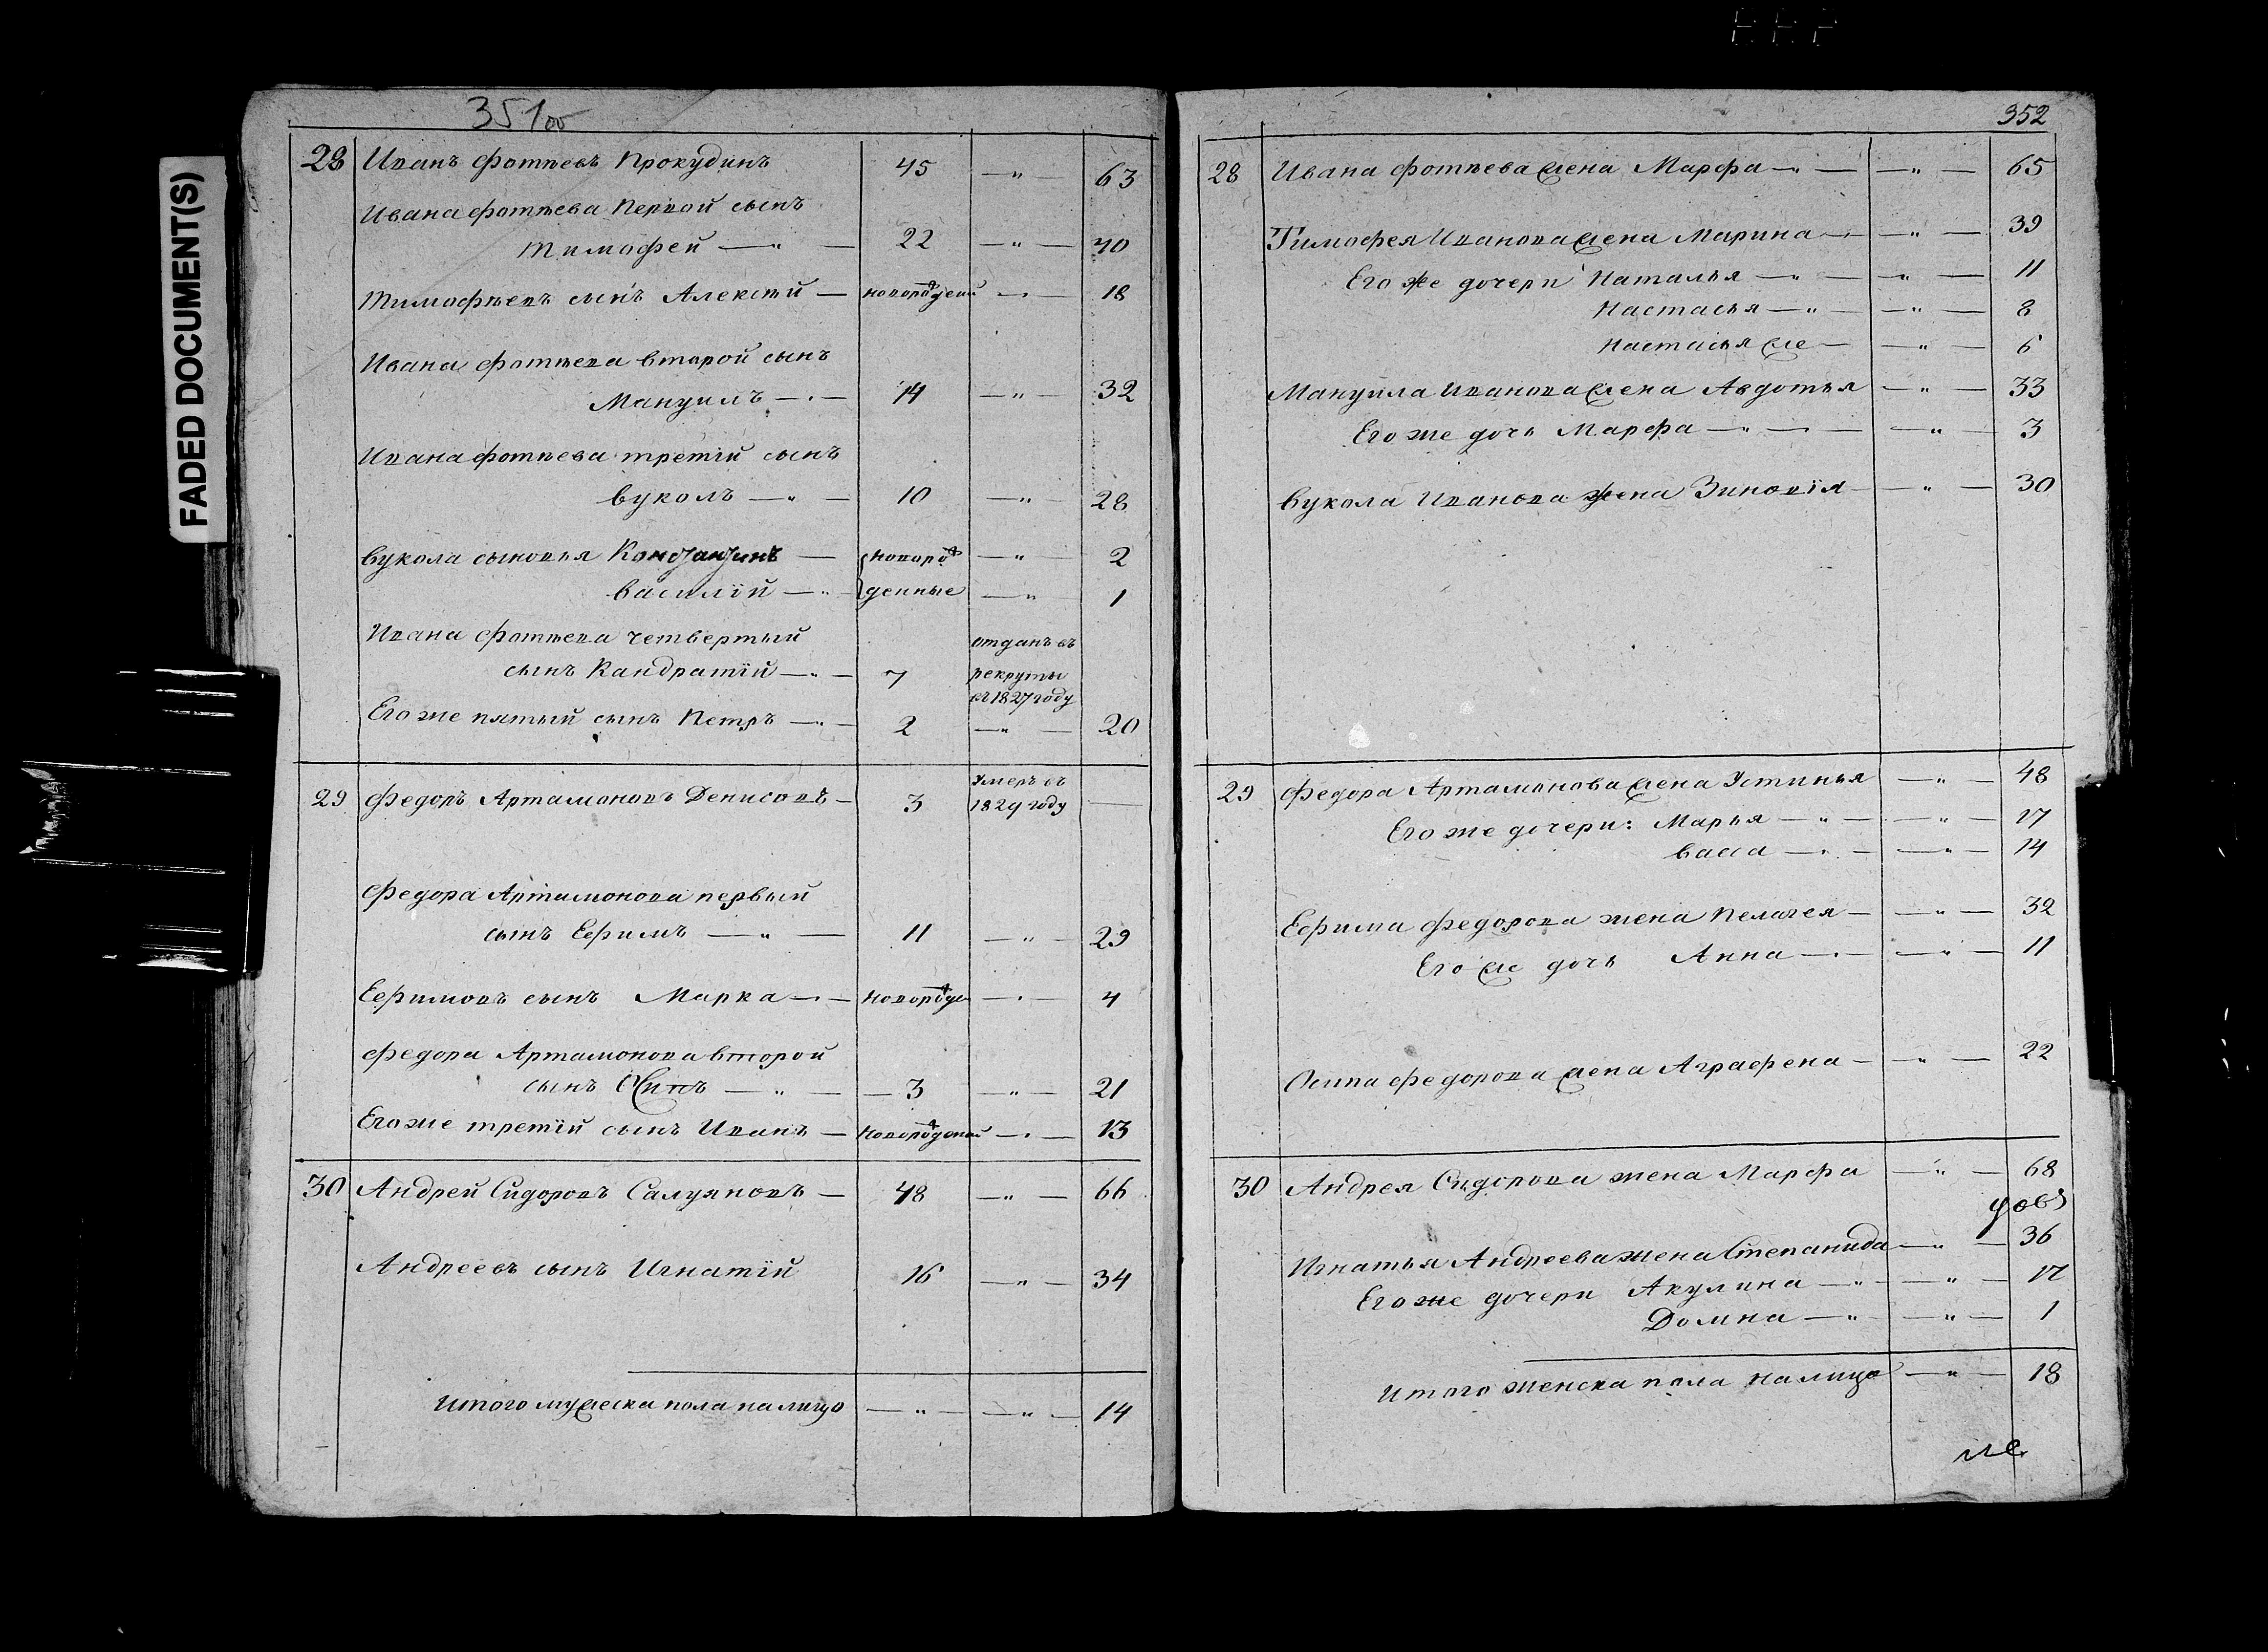 FADED DOCUMENT(S)
351об
28 Иванъ Фотѣевъ Прокудинъ 45 — " — 63
Ивана Фотѣева Первой сынъ
Тимофей — " — 22 — " — 40
Тимофѣевъ сынъ Алексѣй — новорожденный — " — 18
Ивана Фотѣева второй сынъ
Мануилъ — " — 14 — " — 32
Ивана Фотѣева третій сынъ
Вуколъ — " — 10 — " 28
Вукола сыновья Константинъ — новорож — " — 2
Василій — " — денные — " — 1
Ивана Фотѣева четвертый отданъ въ
сынъ Кандратій — " — 7 рекруты
въ 1827 году
Его же пятый сынъ Петръ — " — 2 — " — 20
29 Федоръ Артамоновъ Денисовъ — 3 умеръ въ
1829 году —
Федора Артамонова первый
сынъ Ефимъ — " — 11 — " — 29
Ефимовъ сынъ Марка — " — новорожде — " — 4
Федора Артамонова второй
сынъ Осипъ — " — 3 — " — 21
Его же третій сынъ Иванъ — новорожденой — " — 13
30 Андрей Сидоровъ Салуяновъ — 48 — " — 66
Андреевъ сынъ Игнатій 16 — " — 34
Итого мужеска пола налицо — " — — " — 14
352
28 Ивана Фотѣева жена Марфа — " — — " — 65
Тимофея Иванова жена Марина — " — — " — 39
Его же дочери Наталья — " — " — 11
Настасья — " — — " — 8
Настасья же — — " — 6
Мануила Иванова жена Авдотья — " — 33
Его же дочь Марфа — " — " — — " — 3
Вукола Иванова жена Зиновія — — " — 30
29 Федора Артамонова жена Устинья — " — 48
Его же дочери: Марья — " — — " — 17
Васса — " — — " — 14
Ефима Федорова жена Пелагея — — " — 32
Его же дочь Анна — " — — " — 11
Осипа Федорова жена Аграфена — — " — 22
30 Андрея Сидорова жена Марфа — " — 68
Игнатья Андреева жена Степанида — " — 36
Его же дочери Акулина — " — — " — 17
Домна — " — — " — 1
Итого женска пола налицо — " — 18